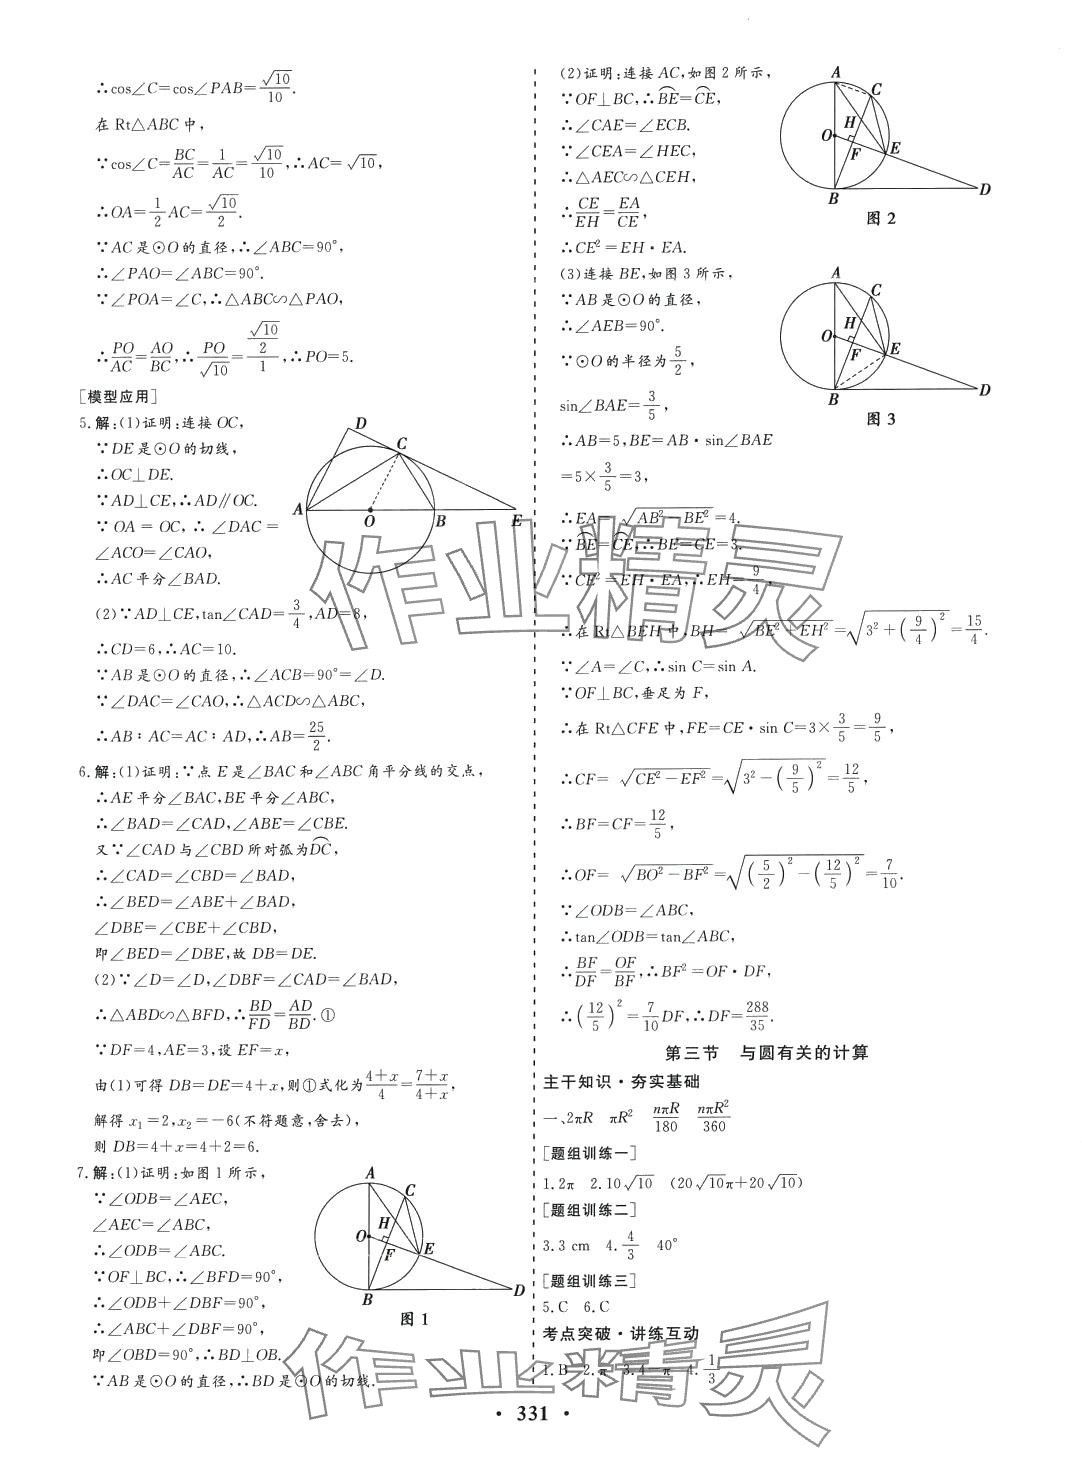 ∴cos∠C=cos∠PAB=√10/10.
在 Rt△ABC 中,
∵cos∠C=BC/AC=1/AC=√10/10,∴AC=√10,
∴OA=1/2AC=√10/2.
∵AC 是⊙O 的直径,∴∠ABC=90°,
∴∠PAO=∠ABC=90°.
∵∠POA=∠C,∴△ABC∽△PAO,
∴PO/AC=AO/BC,∴PO/√10=(√10/2)/1,∴PO=5.
[模型应用]
5.解:(1)证明:连接 OC,
∵DE 是⊙O 的切线,
∴OC⊥DE.
∵AD⊥CE,∴AD∥OC.
∵OA=OC,∴∠DAC=
∠ACO=∠CAO,
∴AC 平分∠BAD.
D
C
A
O
B
E
(2)∵AD⊥CE,tan∠CAD=3/4,AD=8,
∴CD=6,∴AC=10.
∵AB 是⊙O 的直径,∴∠ACB=90°=∠D.
∵∠DAC=∠CAO,∴△ACD∽△ABC,
∴AB∶AC=AC∶AD,∴AB=25/2.
6.解:(1)证明:∵点 E 是∠BAC 和∠ABC 角平分线的交点,
∴AE 平分∠BAC,BE 平分∠ABC,
∴∠BAD=∠CAD,∠ABE=∠CBE.
又∵∠CAD 与∠CBD 所对弧为D͡C,
∴∠CAD=∠CBD=∠BAD,
∴∠BED=∠ABE+∠BAD,
∠DBE=∠CBE+∠CBD,
即∠BED=∠DBE,故 DB=DE.
(2)∵∠D=∠D,∠DBF=∠CAD=∠BAD,
∴△ABD∽△BFD,∴BD/FD=AD/BD.①
∵DF=4,AE=3,设 EF=x,
由(1)可得 DB=DE=4+x,则①式化为(4+x)/4=(7+x)/(4+x),
解得 x₁=2,x₂=-6(不符题意,舍去),
则 DB=4+x=4+2=6.
7.解:(1)证明:如图 1 所示,
∵∠ODB=∠AEC,
∠AEC=∠ABC,
∴∠ODB=∠ABC.
∵OF⊥BC,∴∠BFD=90°,
∴∠ODB+∠DBF=90°,
∴∠ABC+∠DBF=90°,
即∠OBD=90°,∴BD⊥OB.
∵AB 是⊙O 的直径,∴BD 是⊙O 的切线.
A
C
H
O
F
E
B
D
图 1
(2)证明:连接 AC,如图 2 所示,
∵OF⊥BC,∴B͡E=C͡E,
∴∠CAE=∠ECB.
∵∠CEA=∠HEC,
∴△AEC∽△CEH,
∴CE/EH=EA/CE,
∴CE²=EH·EA.
A
C
H
O
F
E
B
D
图 2
(3)连接 BE,如图 3 所示,
∵AB 是⊙O 的直径,
∴∠AEB=90°.
∵⊙O 的半径为5/2,
sin∠BAE=3/5,
∴AB=5,BE=AB·sin∠BAE
=5×3/5=3,
A
C
H
O
F
E
B
D
图 3
∴EA=√(AB²-BE²)=4.
∵B͡E=C͡E,∴BE=CE=3.
∵CE²=EH·EA,∴EH=9/4,
∴在 Rt△BEH 中,BH=√(BE²+EH²)=√(3²+(9/4)²)=15/4.
∵∠A=∠C,∴sin C=sin A.
∵OF⊥BC,垂足为 F,
∴在 Rt△CFE 中,FE=CE·sin C=3×3/5=9/5,
∴CF=√(CE²-EF²)=√(3²-(9/5)²)=12/5,
∴BF=CF=12/5,
∴OF=√(BO²-BF²)=√((5/2)²-(12/5)²)=7/10.
∵∠ODB=∠ABC,
∴tan∠ODB=tan∠ABC,
∴BF/DF=OF/BF,∴BF²=OF·DF,
∴(12/5)²=7/10DF,∴DF=288/35.
第三节 与圆有关的计算
主干知识·夯实基础
一、2πR πR² nπR/180 nπR²/360
[题组训练一]
1.2π 2.10√10 (20√10π+20√10)
[题组训练二]
3.3 cm 4.4/3 40°
[题组训练三]
5.C 6.C
考点突破·讲练互动
1.B 2.π 3.4-π 4.1/3
• 331 •
作业精灵
作业精灵